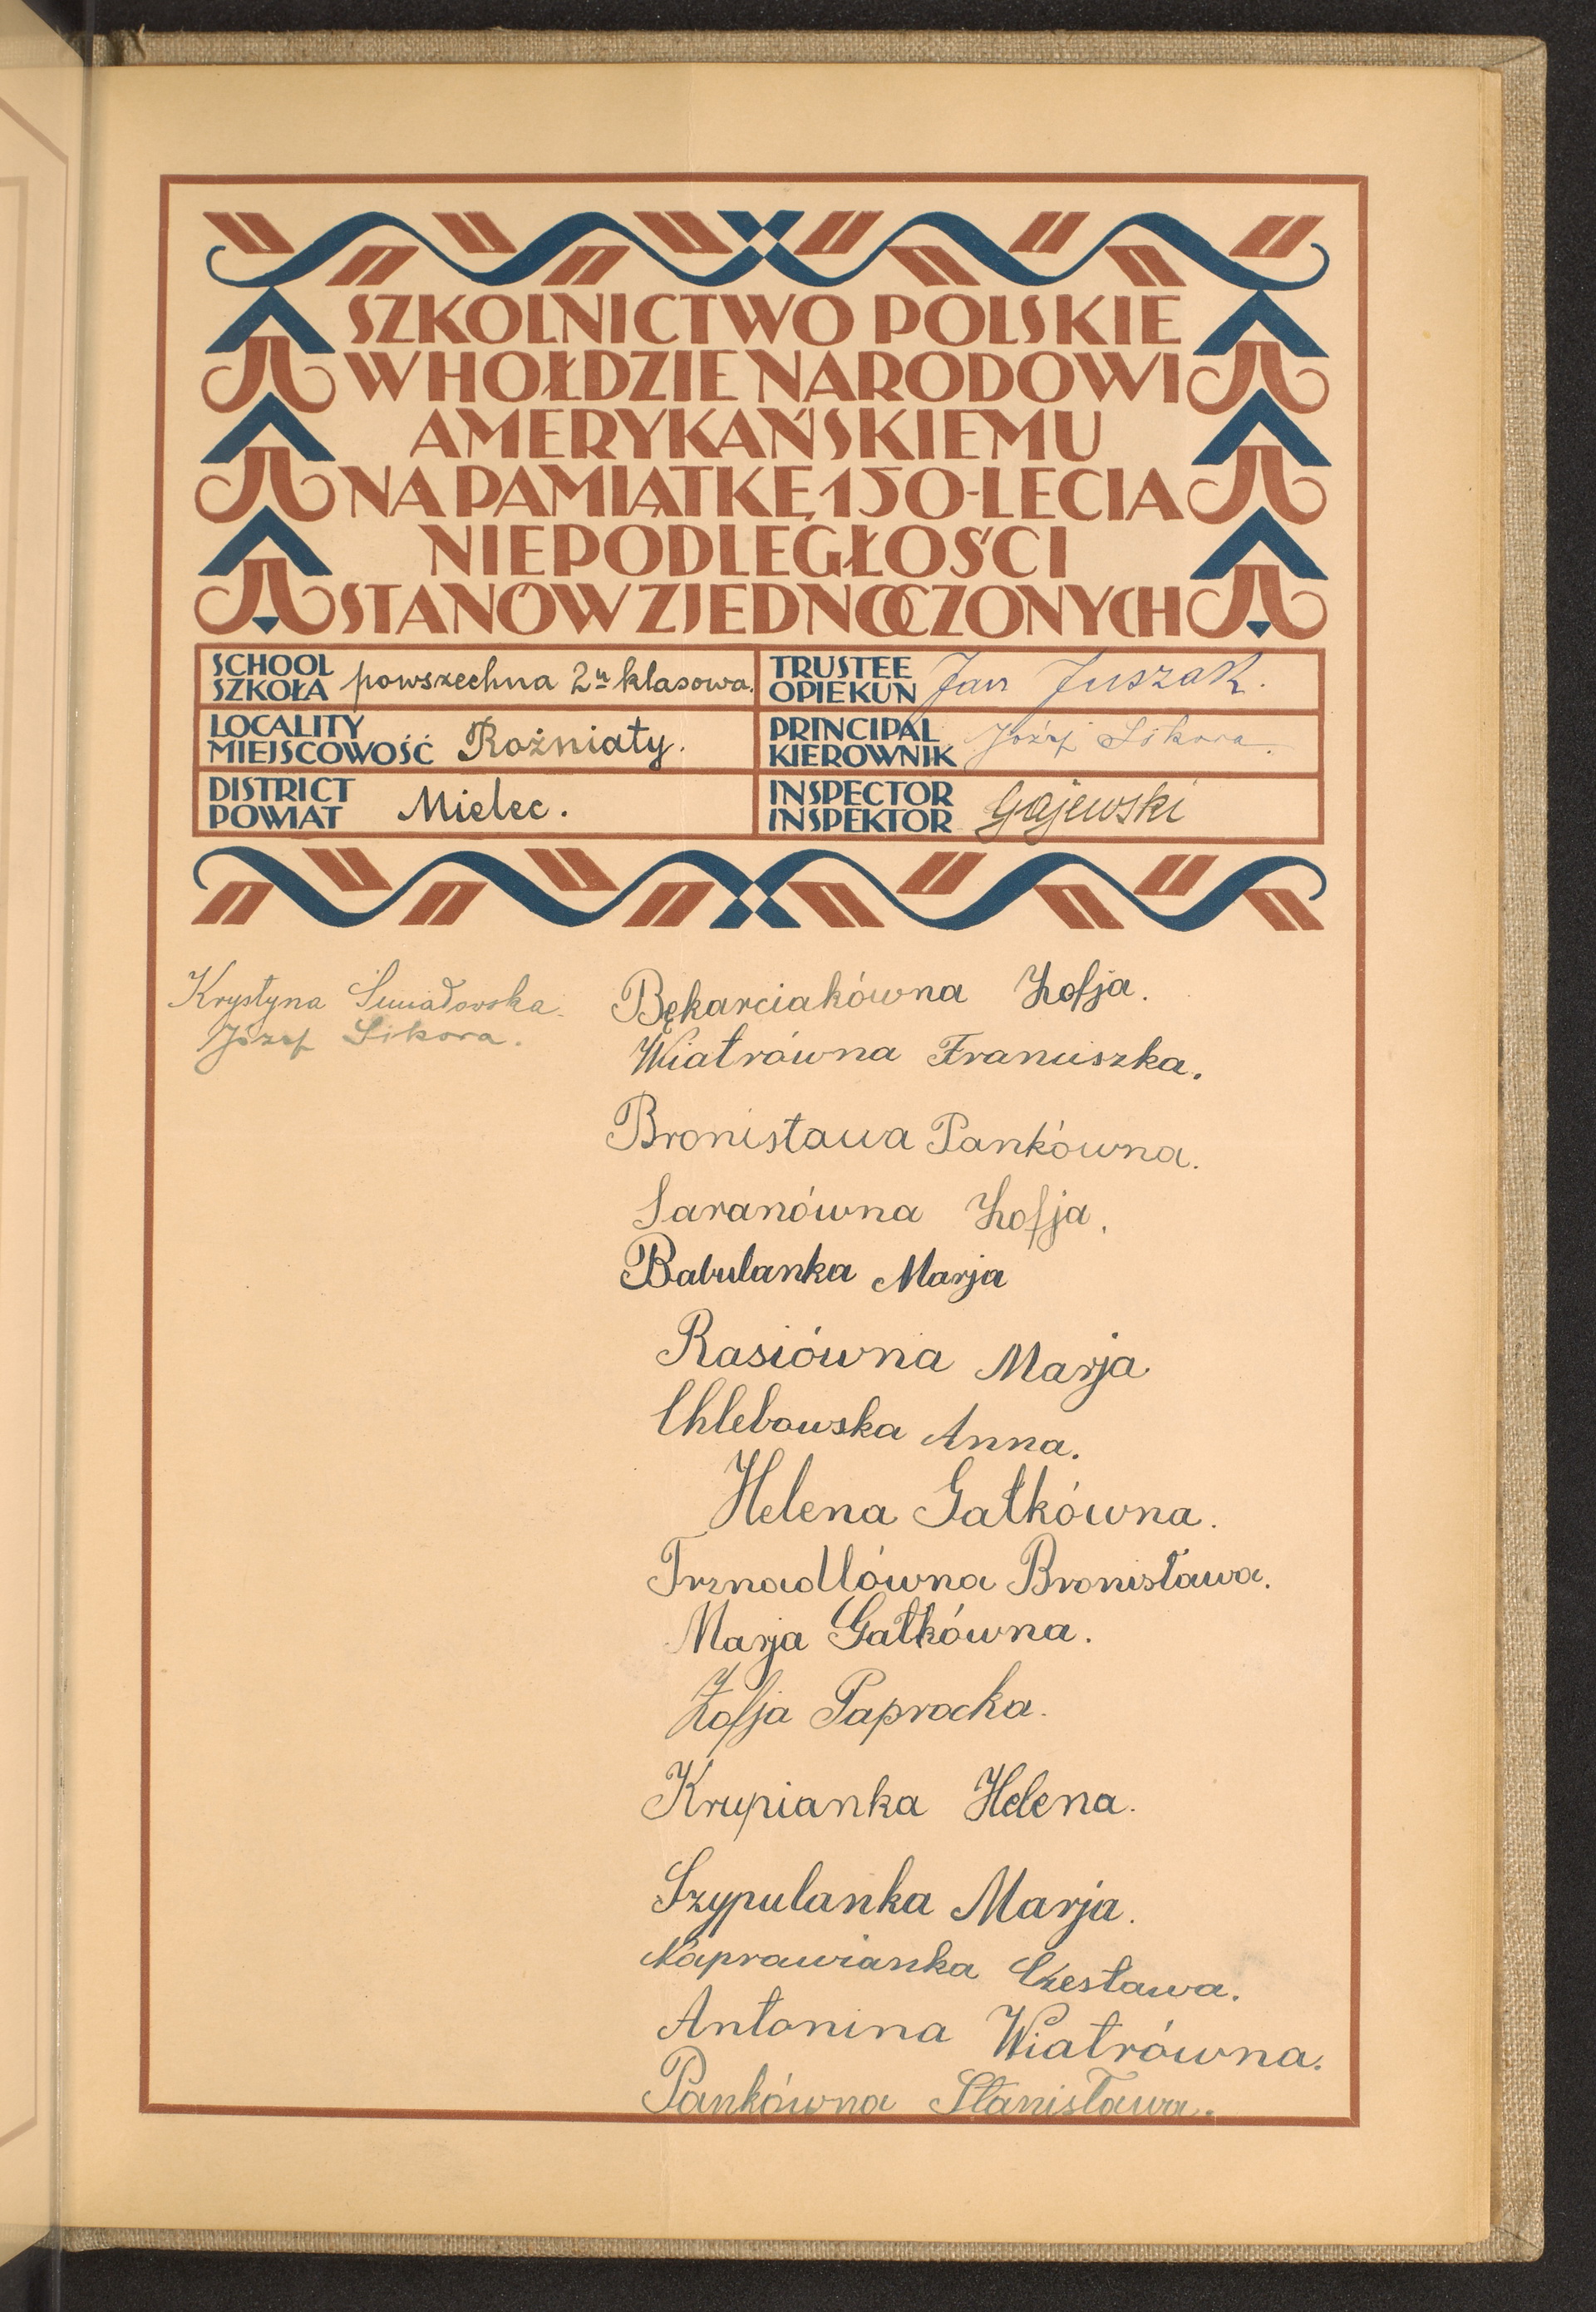 SZKOLNICTWO POLSKIE
W HOŁDZIE NARODOWI
AMERYKAŃSKIEMU
NA PAMIĄTKĘ 150-LECIA
NIEPODLEGŁOŚCI
STANÓW ZJEDNOCZONYCH
SCHOOL
SZKOŁA powszechna 2u klasowa.
TRUSTEE
OPIEKUN Jan Juszak.
LOCALITY
MIEJSCOWOŚĆ Rożniaty.
PRINCIPAL
KIEROWNIK Józef Sikora.
DISTRICT
POWIAT Mielec.
INSPECTOR
INSPEKTOR Gajewski
Krystyna
Józef Sikora.
Bękarciakówna Zofja.
Wiatrówna Franciszka.
Bronisława Pankówna.
Saranówna Zofja.
Babulanka Marja
Rasiówna Marja
Chlebowska Anna.
Helena Gałkówna.
Trznadlówna Bronisława.
Marja Gałkówna.
Zofja Paprocka.
Krupianka Helena.
Szypulanka Marja.
Naprawianka Czesława.
Antonina Wiatrówna.
Pankówna Stanisława.